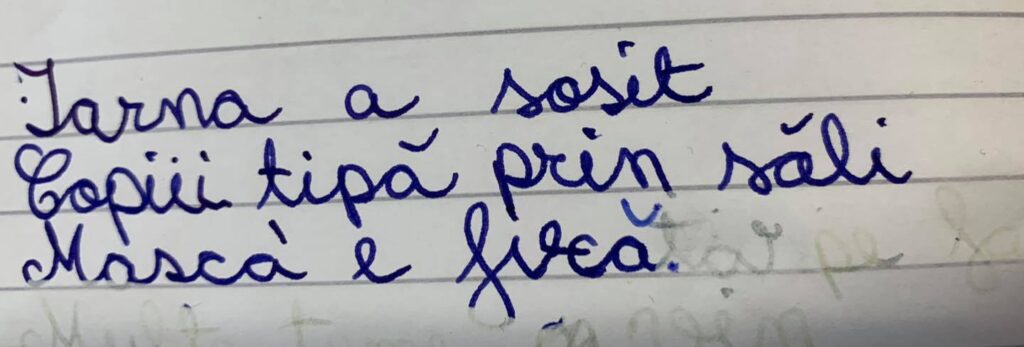 Iarna a sosit
Copiii tipă prin săli
Mascà e fircă.